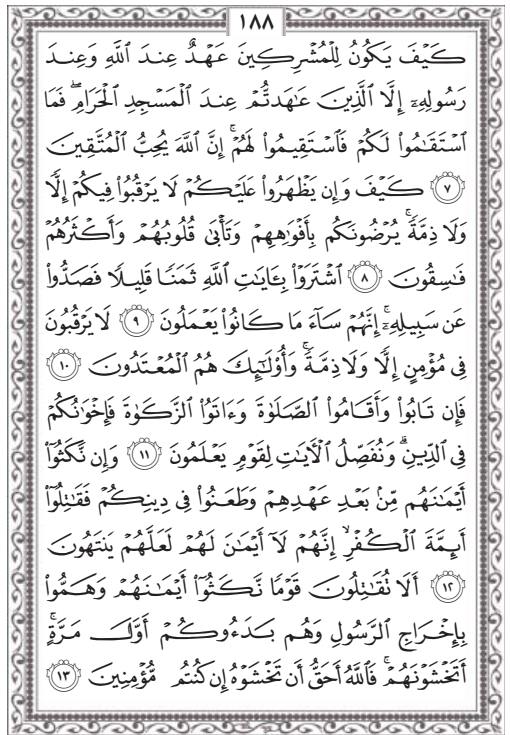 ١٨٨
كَيْفَ يَكُونُ لِلْمُشْرِكِينَ عَهْدٌ عِندَ اللَّهِ وَعِندَ
رَسُولِهِۦٓ إِلَّا الَّذِينَ عَٰهَدتُّمْ عِندَ الْمَسْجِدِ الْحَرَامِ ۖ فَمَا
اسْتَقَٰمُوا۟ لَكُمْ فَاسْتَقِيمُوا۟ لَهُمْ ۚ إِنَّ اللَّهَ يُحِبُّ الْمُتَّقِينَ
٧ كَيْفَ وَإِن يَظْهَرُوا۟ عَلَيْكُمْ لَا يَرْقُبُوا۟ فِيكُمْ إِلًّا
وَلَا ذِمَّةً ۚ يُرْضُونَكُم بِأَفْوَٰهِهِمْ وَتَأْبَىٰ قُلُوبُهُمْ وَأَكْثَرُهُمْ
فَٰسِقُونَ ٨ اشْتَرَوْا۟ بِـَٔايَٰتِ اللَّهِ ثَمَنًا قَلِيلًا فَصَدُّوا۟
عَن سَبِيلِهِۦٓ ۚ إِنَّهُمْ سَآءَ مَا كَانُوا۟ يَعْمَلُونَ ٩ لَا يَرْقُبُونَ
فِى مُؤْمِنٍ إِلًّا وَلَا ذِمَّةً ۚ وَأُو۟لَٰٓئِكَ هُمُ الْمُعْتَدُونَ ١٠
فَإِن تَابُوا۟ وَأَقَامُوا۟ الصَّلَوٰةَ وَءَاتَوُا۟ الزَّكَوٰةَ فَإِخْوَٰنُكُمْ
فِى الدِّينِ ۗ وَنُفَصِّلُ الْءَايَٰتِ لِقَوْمٍ يَعْلَمُونَ ١١ وَإِن نَّكَثُوٓا۟
أَيْمَٰنَهُم مِّنۢ بَعْدِ عَهْدِهِمْ وَطَعَنُوا۟ فِى دِينِكُمْ فَقَٰتِلُوٓا۟
أَئِمَّةَ الْكُفْرِ ۙ إِنَّهُمْ لَآ أَيْمَٰنَ لَهُمْ لَعَلَّهُمْ يَنتَهُونَ
١٢ أَلَا تُقَٰتِلُونَ قَوْمًا نَّكَثُوٓا۟ أَيْمَٰنَهُمْ وَهَمُّوا۟
بِإِخْرَاجِ الرَّسُولِ وَهُم بَدَءُوكُمْ أَوَّلَ مَرَّةٍ ۚ
أَتَخْشَوْنَهُمْ ۚ فَاللَّهُ أَحَقُّ أَن تَخْشَوْهُ إِن كُنتُم مُّؤْمِنِينَ ١٣